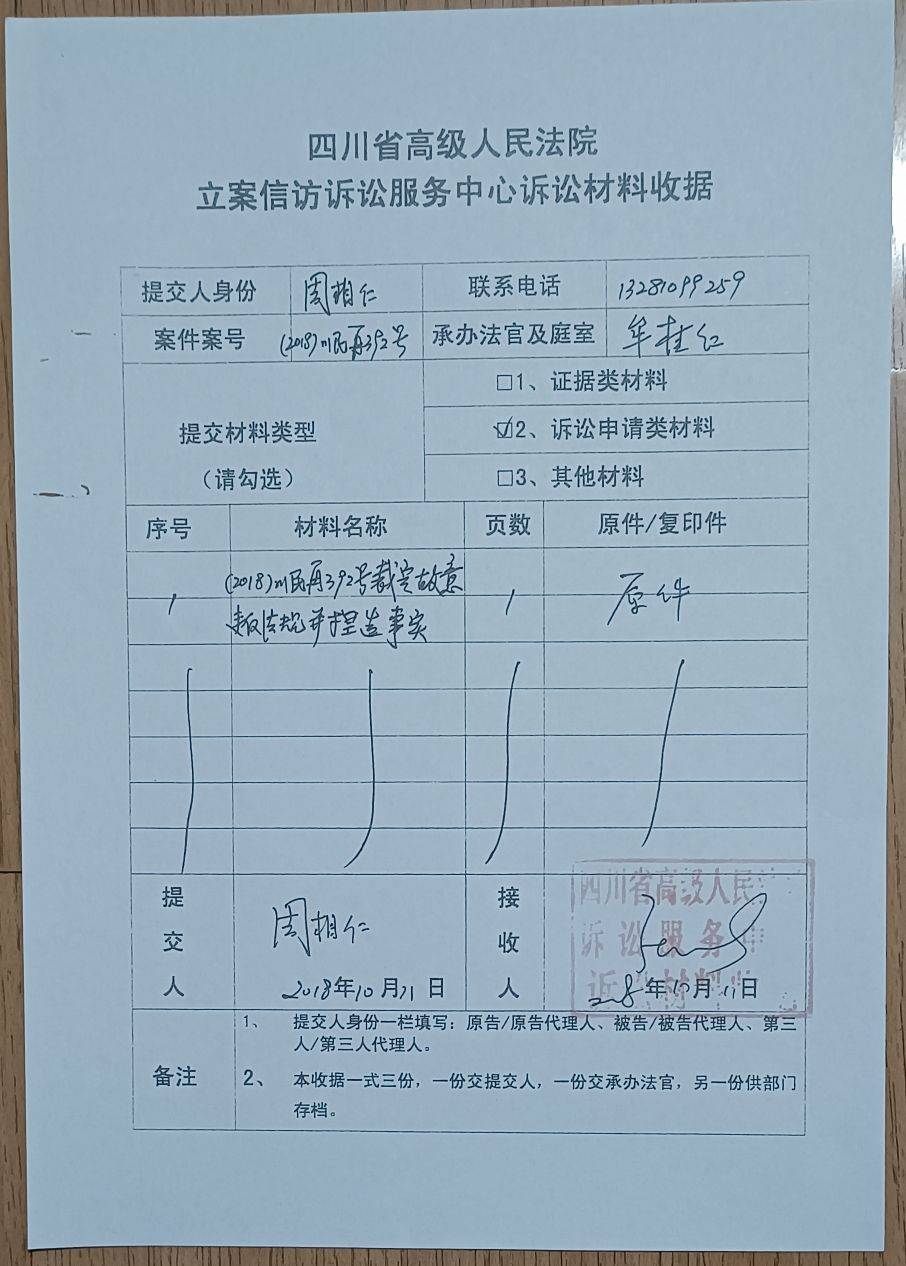 四川省高级人民法院
立案信访诉讼服务中心诉讼材料收据
提交人身份 周相仁 联系电话 13281099259
案件案号 (2018)川民再392号 承办法官及庭室 牟桂红
提交材料类型
（请勾选）
□1、证据类材料
☑2、诉讼申请类材料
□3、其他材料
序号 材料名称 页数 原件/复印件
(2018)川民再392号裁定故意
1 违反法规并捏造事实 1 原件
提交人 周相仁
2018年10月11日
接收人
2018年10月11日
四川省高级人民
诉讼服务中
诉讼材料
备注
1、 提交人身份一栏填写：原告/原告代理人、被告/被告代理人、第三
人/第三人代理人。
2、 本收据一式三份，一份交提交人，一份交承办法官，另一份供部门
存档。